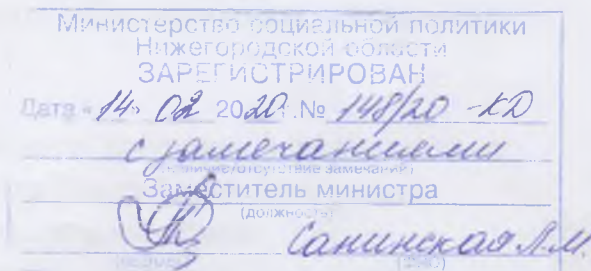 Министерство социальной политики
Нижегородской области
ЗАРЕГИСТРИРОВАН
Дата «14» 02 2020 г. № 148/20 -КД
с замечаниями
(наличие/отсутствие замечаний)
Заместитель министра
(должность)
Санинская Л.М.
(подпись) (ФИО)